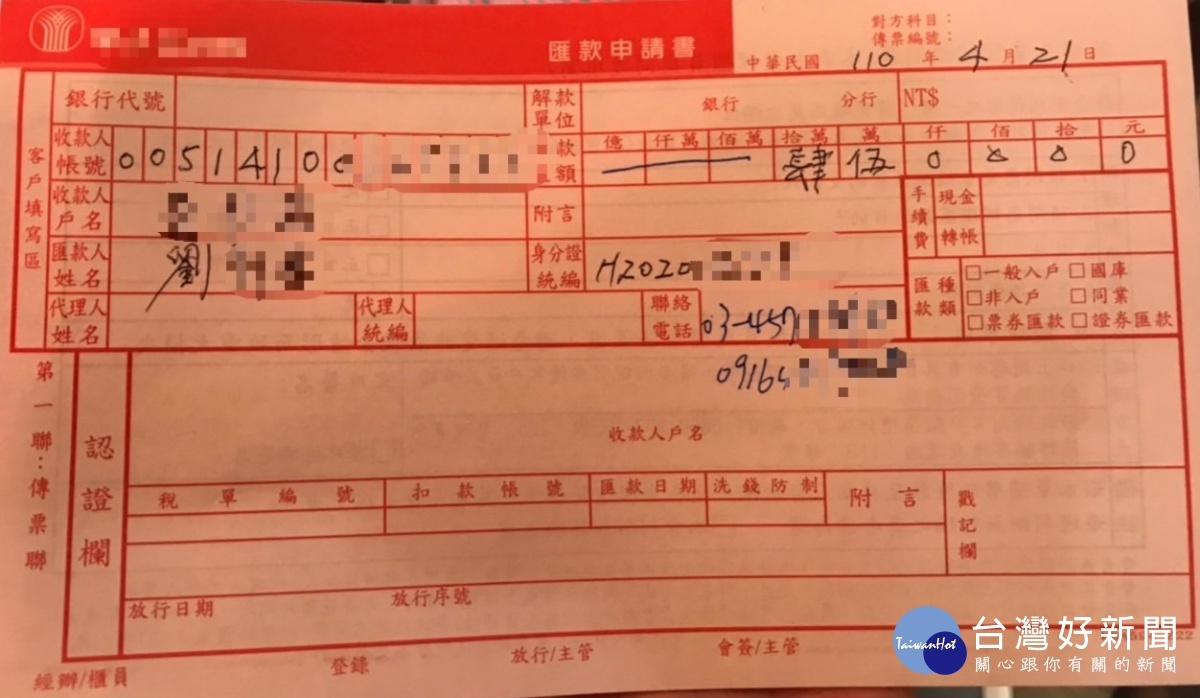 匯款申請書
對方科目：
傳票編號：
中華民國 110 年 4 月 21 日
客戶填寫區
銀行代號
解款單位 銀行 分行 NT$
收款人帳號 0051410
億 仟萬 佰萬 拾萬 萬 仟 佰 拾 元
肆 伍 0 0 0 0
收款人戶名
附言
手續費 現金
轉帳
匯款人姓名 劉
身分證統編 H2020
匯款種類 □一般入戶 □國庫
□非入戶 □同業
□票券匯款 □證券匯款
代理人姓名
代理人統編
聯絡電話 03-457
0916
第一聯：傳票聯
認證欄
收款人戶名
稅單編號 扣款帳號 匯款日期 洗錢防制 附言 戳記欄
放行日期 放行序號
經辦/櫃員 登錄 放行/主管 會簽/主管
TaiwanHot
台灣好新聞
關心跟你有關的新聞